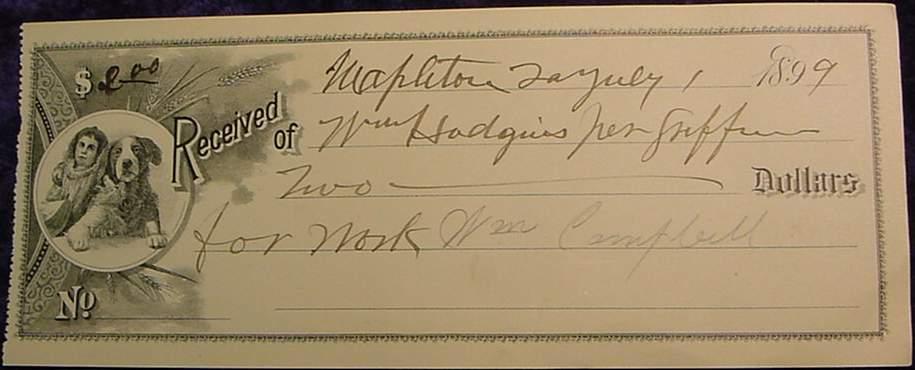 $ 2.00
Mapleton Ia July 1 1899
Received of Wm Hodgins per Griffin
Two Dollars
for Work Wm Campbell
No